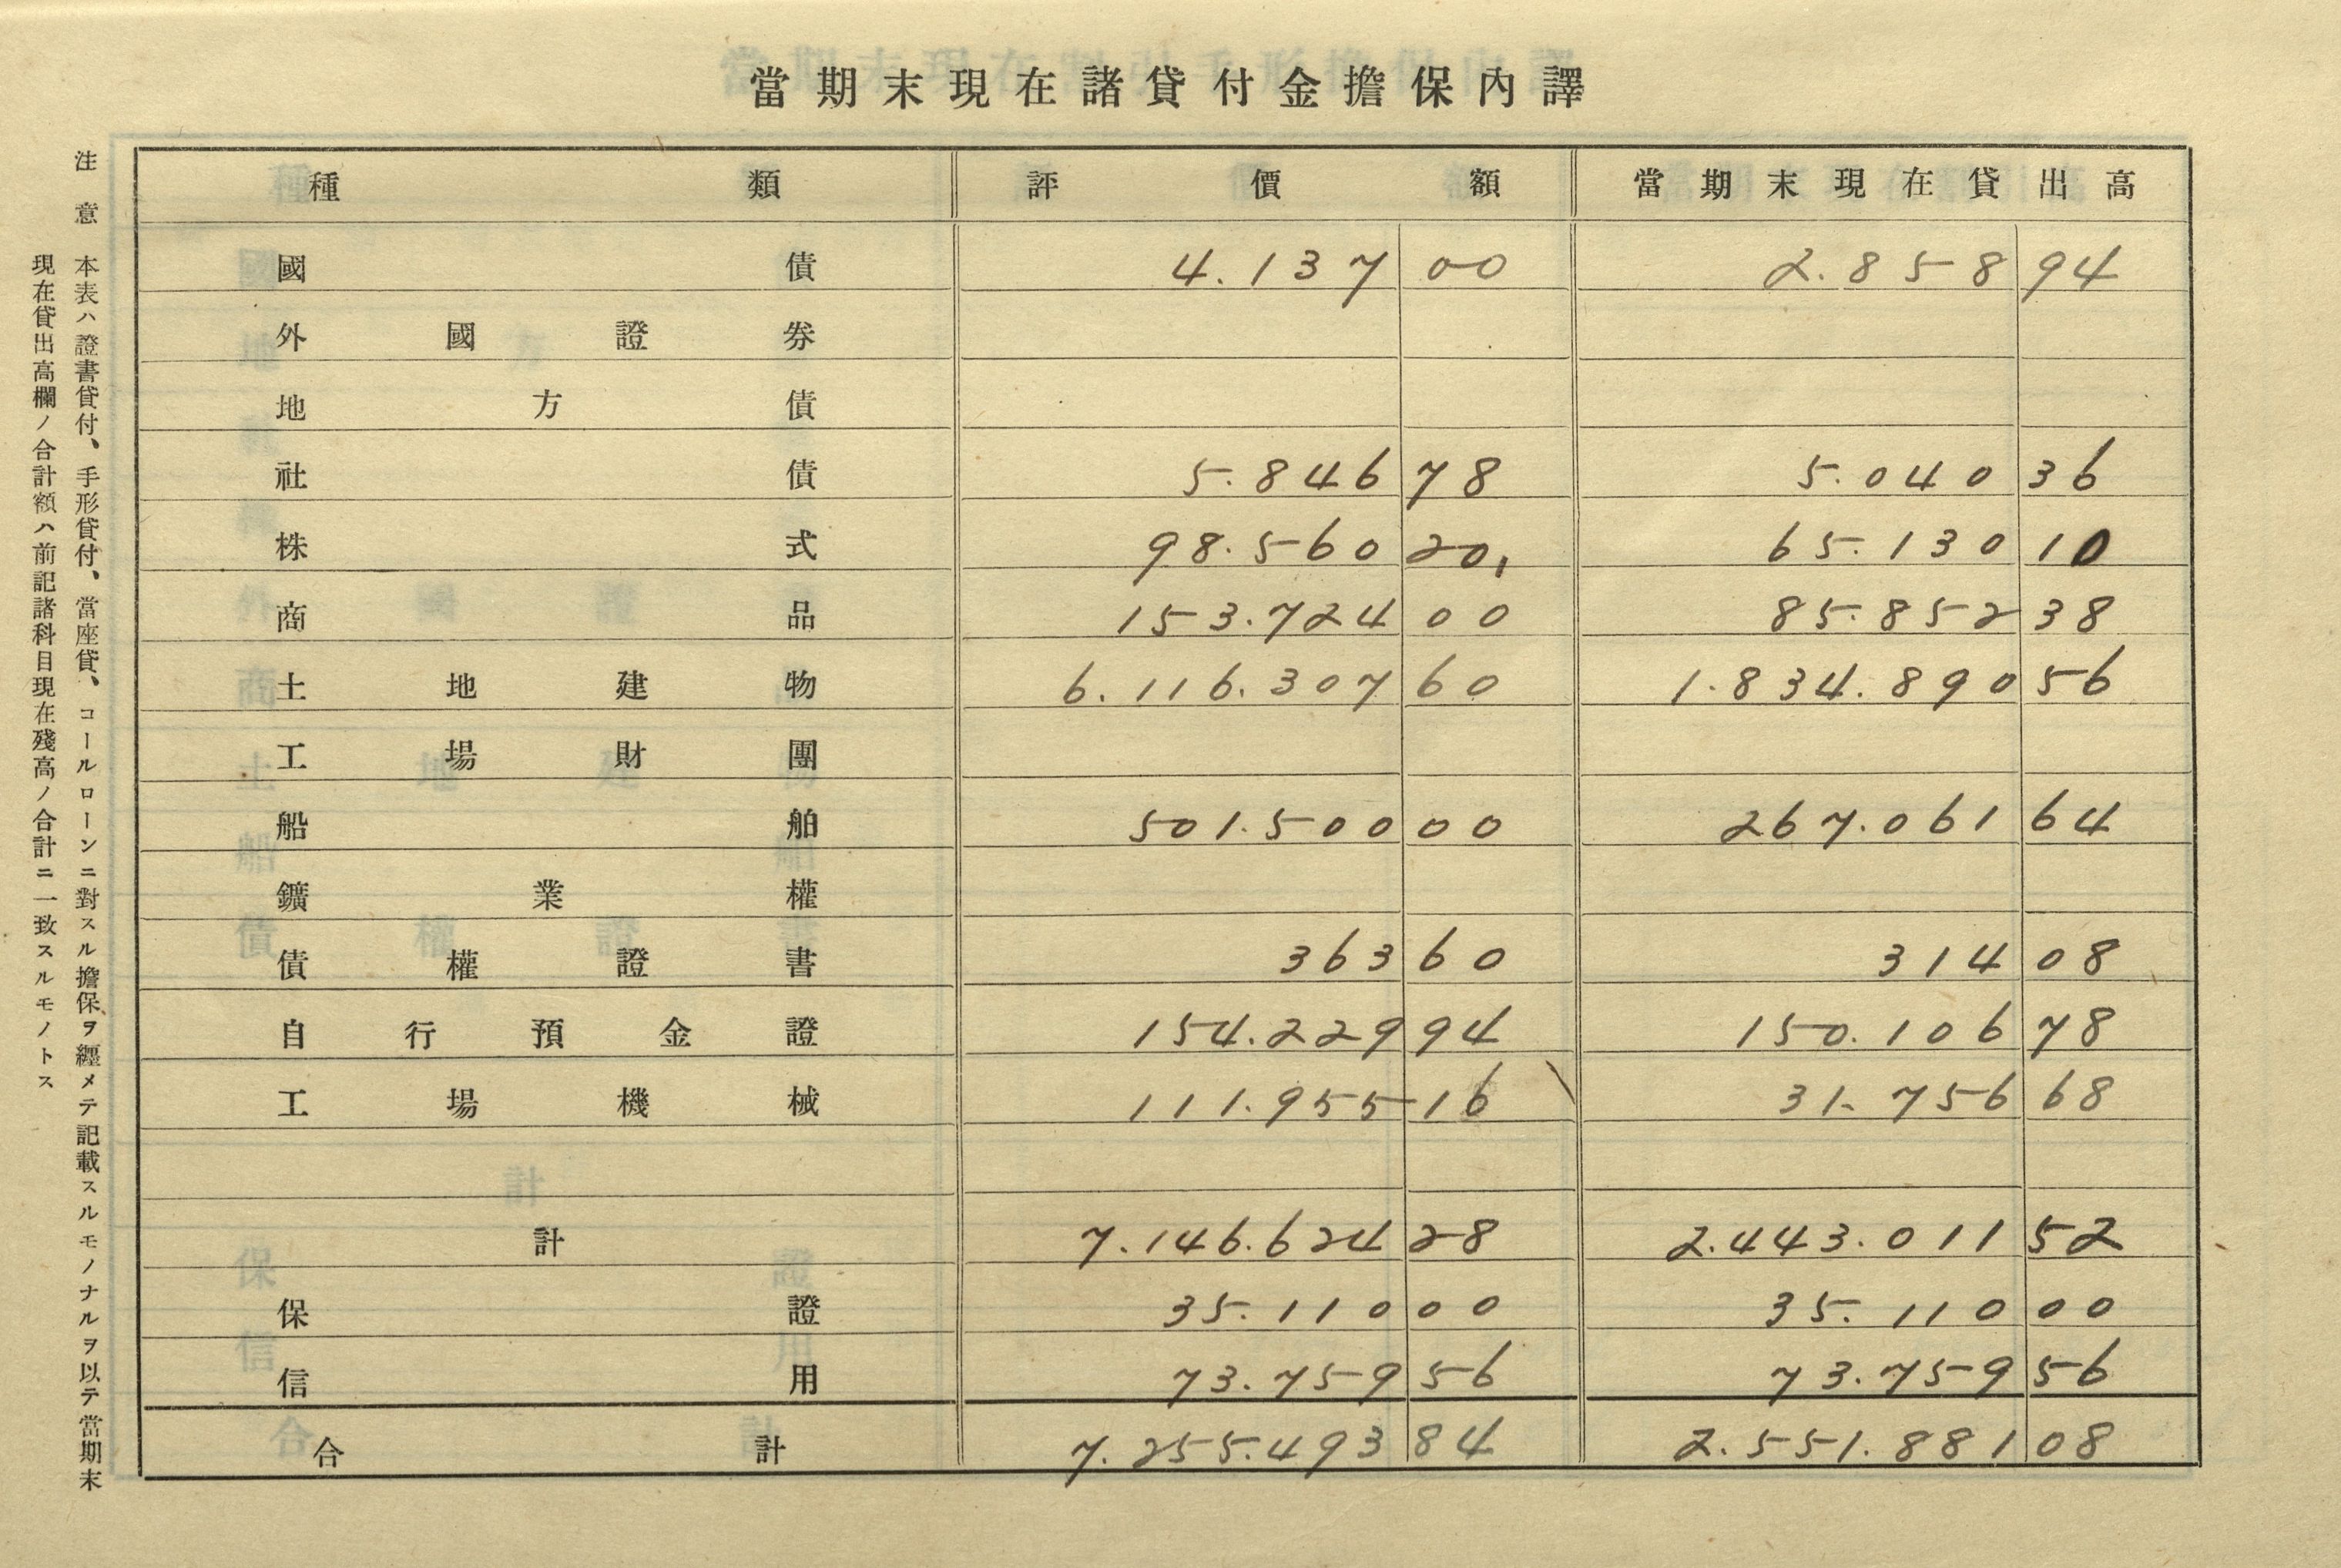 當期末現在諸貸付金擔保內譯
種類 評價額 當期末現在貸出高
國債 4.137 00 2.858 94
外國證券
地方債
社債 5.846 78 5.040 36
株式 98.560 20 65.130 10
商品 153.724 00 85.852 38
土地建物 6.116.307 60 1.834.890 56
工場財團
船舶 501.500 00 267.061 64
鑛業權
債權證書 363 60 314 08
自行預金證 154.229 94 150.106 78
工場機械 111.955 16 31.756 68
計 7.146.624 28 2.443.011 52
保證 35.110 00 35.110 00
信用 73.759 56 73.759 56
合計 7.255.493 84 2.551.881 08
注意 本表ハ證書貸付、手形貸付、當座貸、コールローンニ對スル擔保ヲ纒メテ記載スルモノナルヲ以テ當期末
現在貸出高欄ノ合計額ハ前記諸科目現在殘高ノ合計ニ一致スルモノトス